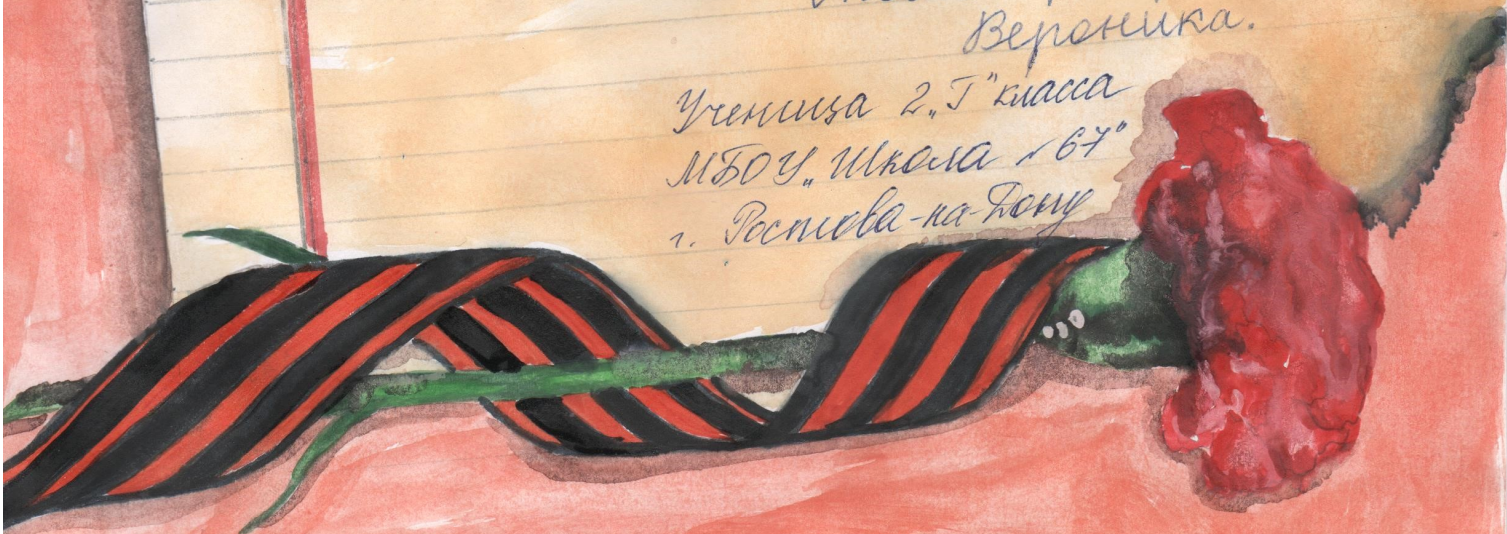 Вероника.
Ученица 2„Г" класса
МБОУ „Школа №67"
г. Ростова-на-Дону